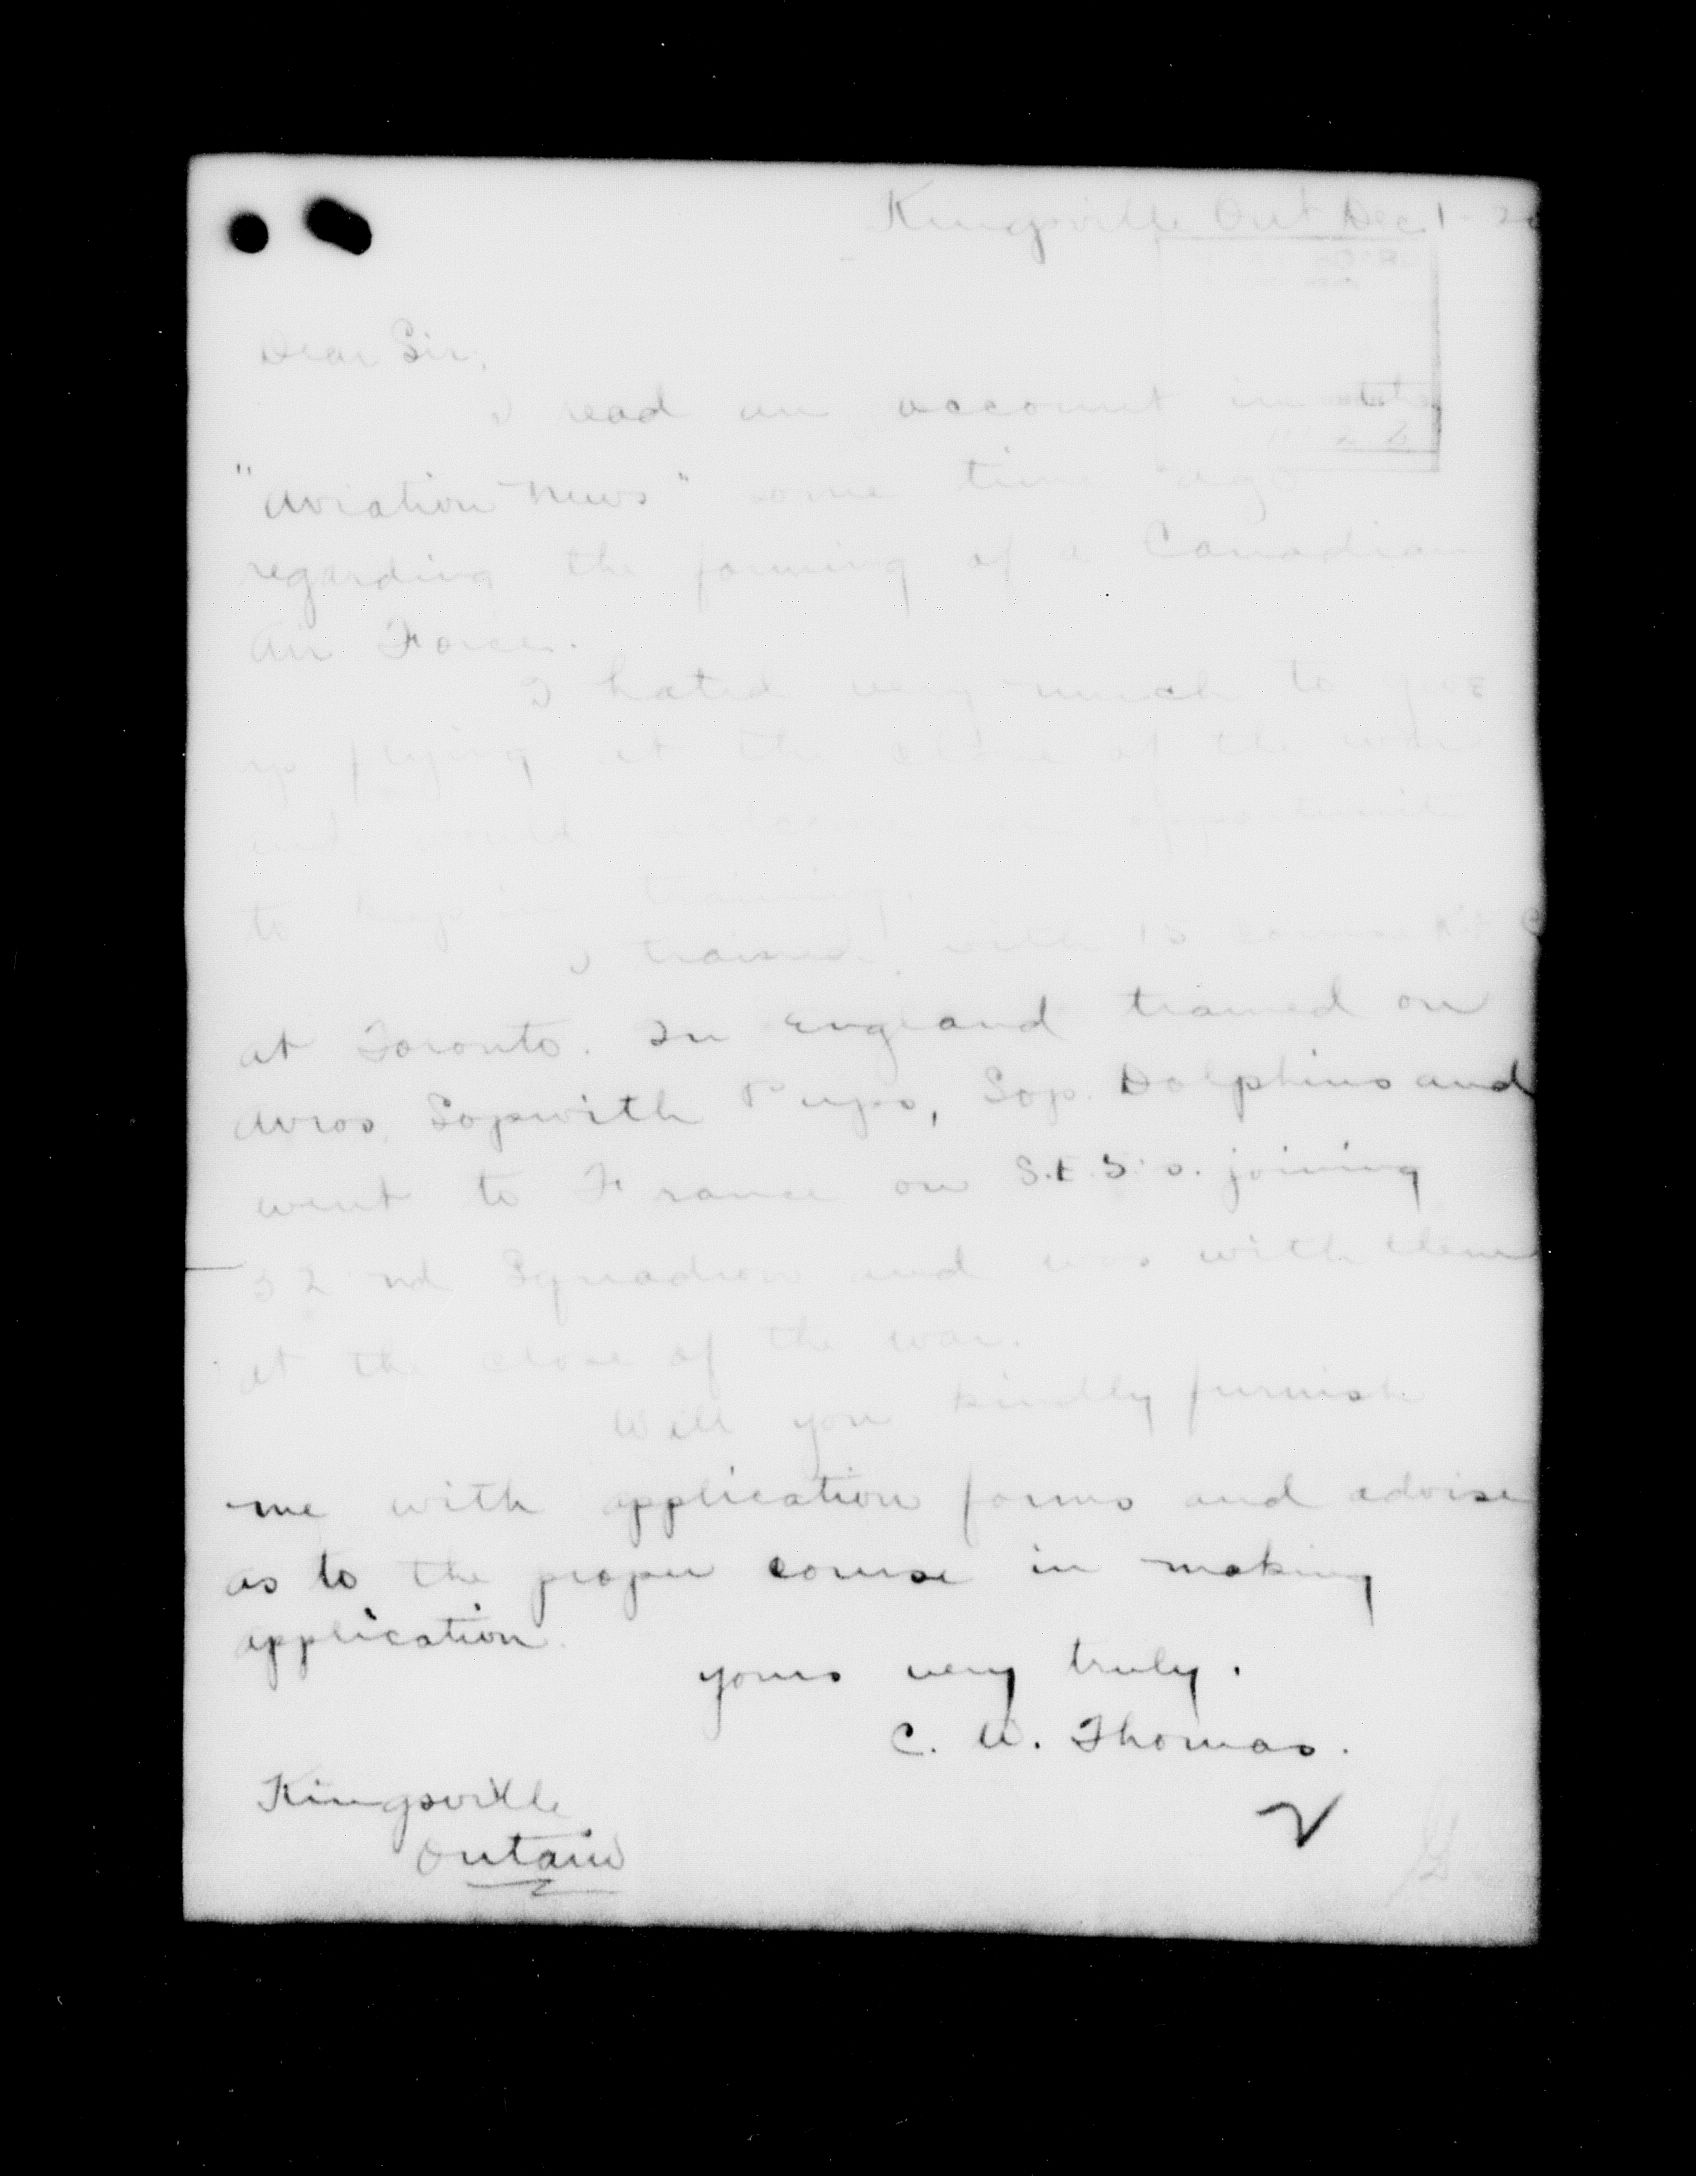 Kingsville Ont Dec 1 - 20
Dear Sir,
I read an account in the
"Aviation News" some time ago
regarding the forming of a Canadian
Air Force.
I hated very much to give
up flying at the close of the war
and would welcome an opportunity
to keep in training.
I trained with 15 course
at Toronto. In England trained on
Avros, Sopwith Pups, Sop. Dolphins and
went to France on S.E. 5's. joining
32 nd Squadron and was with them
at the close of the war.
Will you kindly furnish
me with application forms and advise
as to the proper course in making
application.
yours very truly.
C. W. Thomas.
Kingsville
Ontario